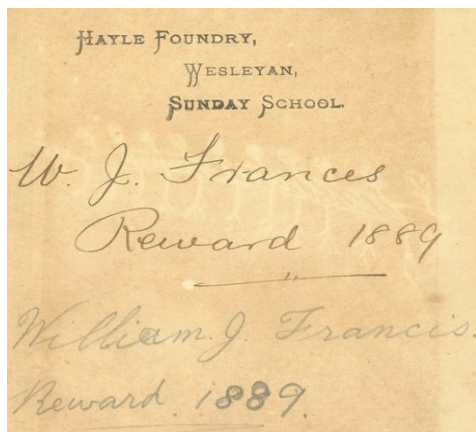 HAYLE FOUNDRY,
WESLEYAN,
SUNDAY SCHOOL.
W. J. Frances
Reward 1889
William. J. Francis.
Reward. 1889.